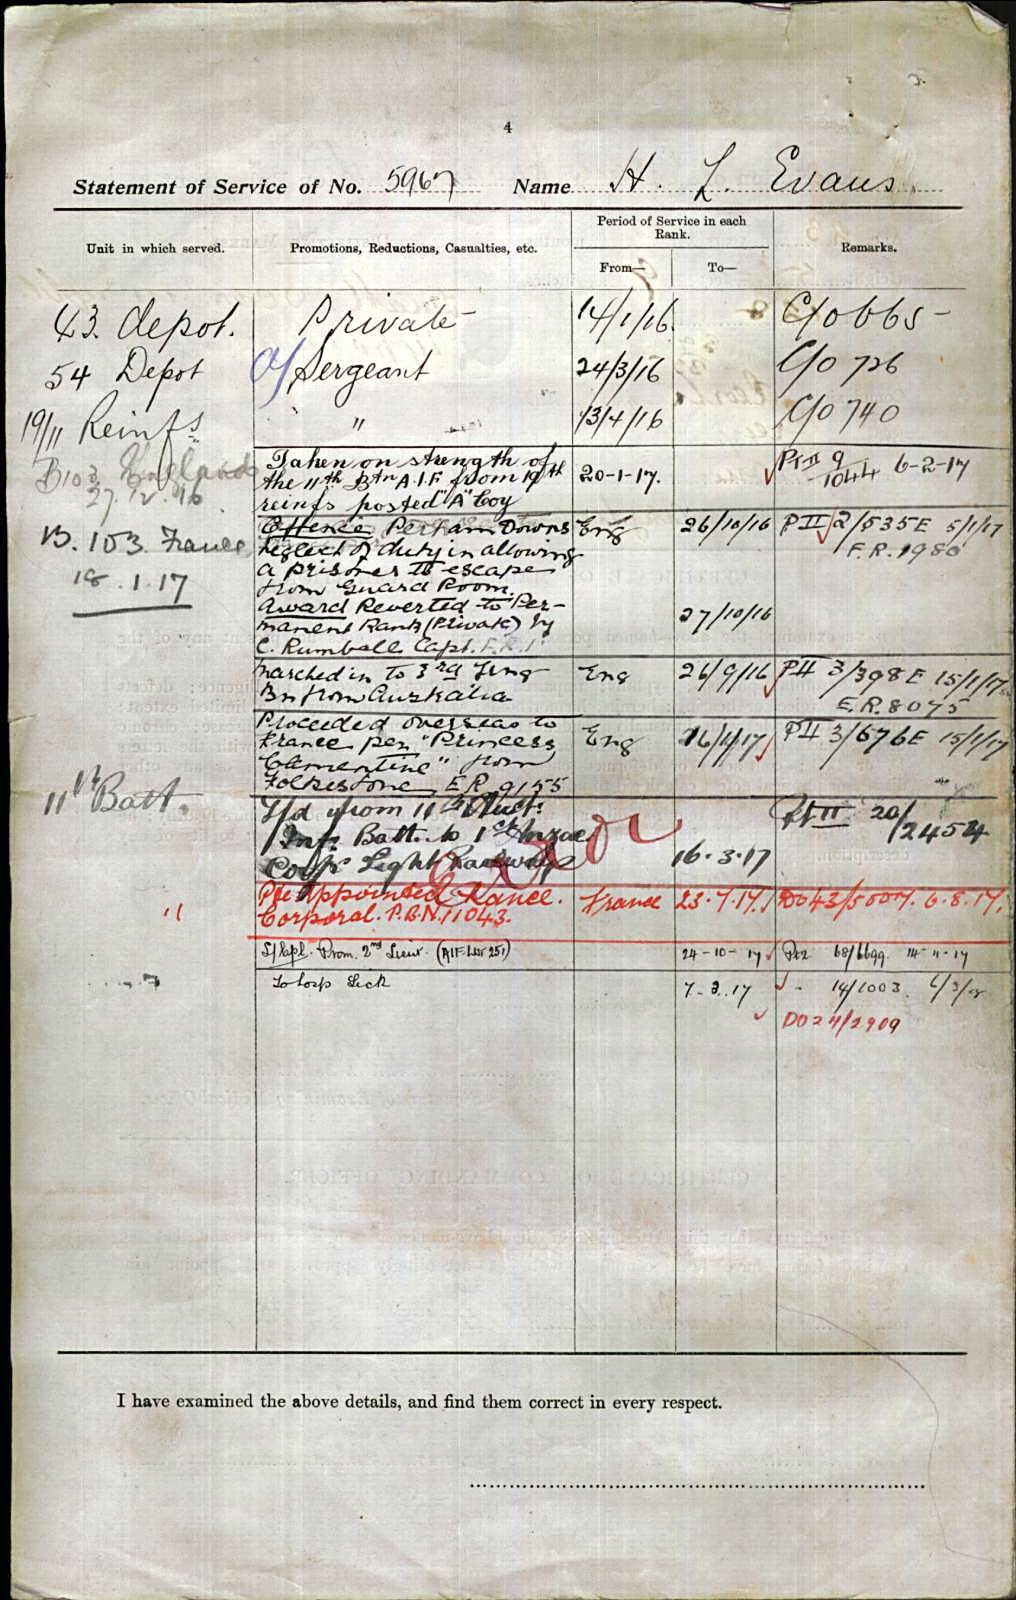 4
Statement of Service of No. 5967 Name H. L. Evans.
Unit in which served. Promotions, Reductions, Casualties, etc. Period of Service in each Rank. Remarks.
From— To—
43. depot. Private 14/1/16. C/o 665 -
54 Depot A/ Sergeant 24/3/16 C/o 726
19/11 Reinfs " 13/4/16 C/o 740
B103 England
27.12.16
Taken on strength of
the 11th Btn A.I.F from 19th 20-1-17. Pt II 9/1044 6-2-17
reinfs posted "A" Coy
B. 103 France
18.1.17
Offence Perham Downs Eng 26/10/16 P II 2/535E 5/1/17
neglect of duty in allowing E.R. 1980
a prisoner to escape
from Guard Room.
Award Reverted to Per- 27/10/16
manent Rank (Private) by
C. Rumball Capt.
marched in to 3rd Trng Eng 26/9/16 P II 3/398E 15/1/17
Bn from Australia E.R. 8075
Proceeded overseas to
France per "Princess Eng 16/1/17 P II 3/676E 15/1/17
Clementine" from
Folkestone E.R. 9155
11th Batt. T/d from 11th Aust. Pt II 20/2454
Inf. Batt. to 1st Anzac
Corps Light Railways 16.3.17
" Pte Appointed Lance. France 23.7.17. DO43/5007. 6.8.17.
Corporal. P.B.N. 11043.
L/Cpl. Prom. 2nd Lieut. (AIF List 251) 24-10-17 Pt2 68/6699 14-11-17
To Hosp Sick 7-2.17 14/1003
DO24/2909
I have examined the above details, and find them correct in every respect.